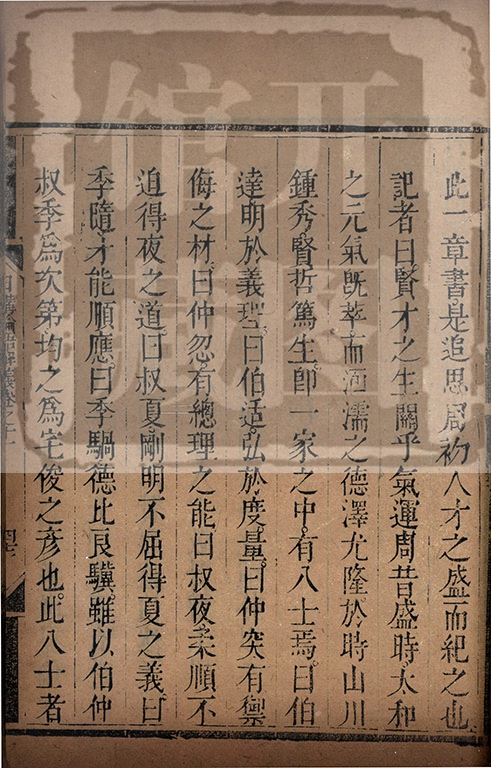 此一章書是追思周初人才之盛而紀之也
記者曰賢才之生關乎氣運周昔盛時太和
之元氣旣萃而涵濡之德澤尤隆於時山川
鍾秀賢哲篤生卽一家之中有八士焉曰伯
達明於義理曰伯适弘於度量曰仲突有禦
侮之材曰仲忽有總理之能曰叔夜柔順不
迫得夜之道曰叔夏剛明不屈得夏之義曰
季隨才能順應曰季騧德比良驥雖以伯仲
叔季爲次第均之爲宅俊之彦也此八士者
日講